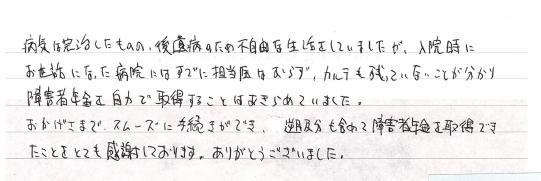 病気は完治したものの、後遺病のため不自由な生活をしていましたが、入院時に
お世話になった病院にはすでに担当医はおらず、カルテも残っていないことが分かり
障害者年金を自力で取得することはあきらめていました。
おかげさまで、スムーズに手続きができ、遡及分も含めて障害者年金を取得でき
たことをとても感謝しております。ありがとうございました。